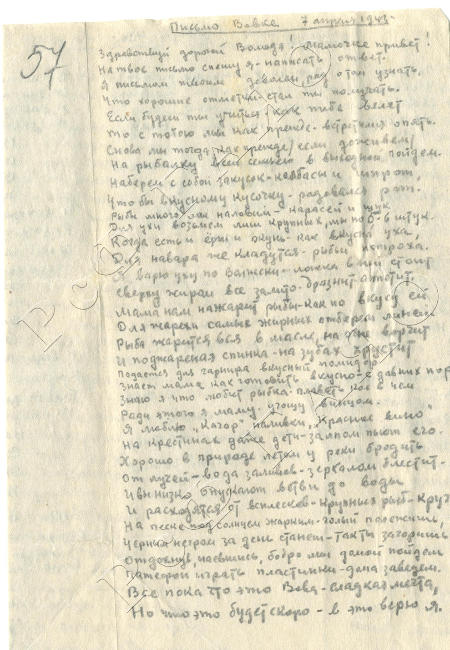 57
Письмо Вовке 7 апреля 1943г.
Здравствуй дорогой Володя! Мамочке привет!
На твое письмо спешу я - написать ответ.
Я письмом твоим доволен, рад о том узнать,
Что хорошие отметки - стал ты получать.
Если будешь ты учиться, как тебе велят
То с тобою мы как прежде - встретимся опять.
Снова мы тогда как прежде, если доживем,
На рыбалку всей семьею в выходной пойдем.
Наберем с собой закусок - колбасы и шпрот,
Что бы вкусному кусочку - радовался рот.
Рыбы много мы наловим - карасей и щук
Для ухи возьмем лишь крупных, мы по 5-6 штук.
Когда есть и ерш и окунь - как вкусна уха,
Для навара же кладутся - рыбьи потроха.
Я варю уху по Волжски - ложка в ней стоит
Сверху жиром все заплыло - дразнит аппетит.
Мама нам нажарит рыбы - как по вкусу ей
Для жарехи самых жирных отберем линей
Рыба жарится вся в масле, на огне ворчит
И поджареная спинка - на зубах хрустит
Подается для гарнира вкусный помидор
Знает мама как готовить вкусно - с давних пор
Знаю я что любит рыбка - плавать кое в чем
Ради этого я маму угощу винцом.
Я люблю "Кагор" наливки, "Красное вино"
На крестинах даже дети - залпом пьют его.
Хорошо в природе летом у реки бродить
От лучей - вода заливов - зеркалом блестит.
Ивы низко опускают ветви до воды
И расходятся от всплесков - крупных рыб - круги
На песке под солнцем жарким - голый полежишь,
Черным негром за день станешь - так ты загоришь
Отдохнув, наевшись, бодро мы домой пойдем
Патефон играть пластинки - дома заведем.
Все пока что это Вова - сладкая мечта,
Но что это будет скоро - в это верю я.